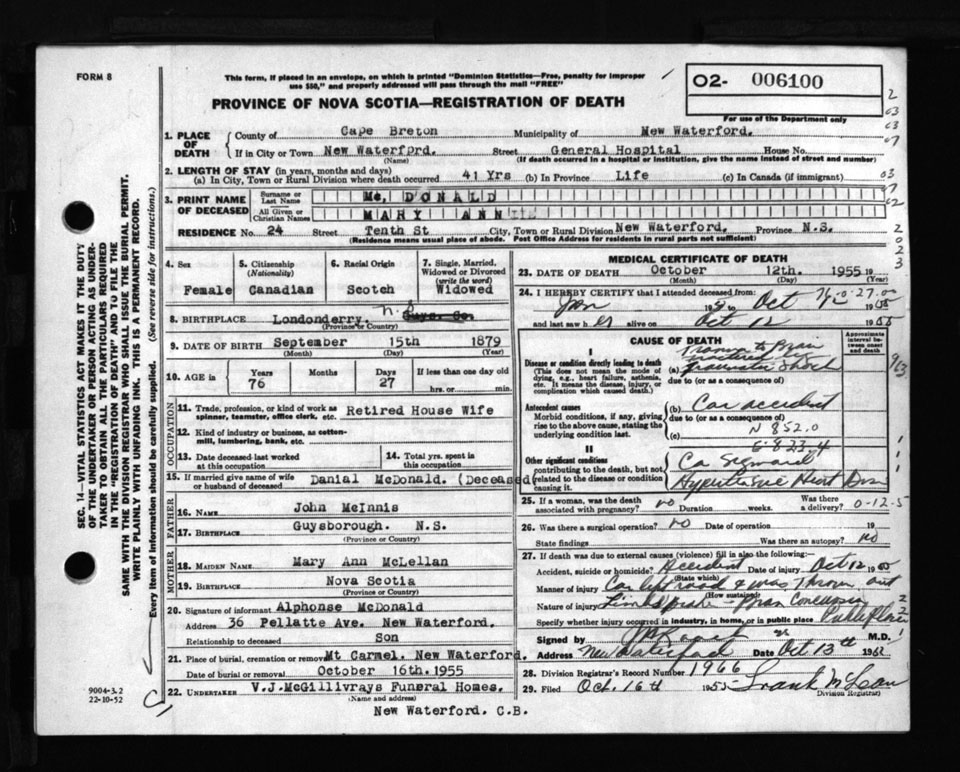 FORM 8
This form, if placed in an envelope, on which is printed "Dominion Statistics—Free, penalty for improper
use $50," and properly addressed will pass through the mail "FREE"
02- 006100
For use of the Department only
PROVINCE OF NOVA SCOTIA—REGISTRATION OF DEATH
SEC. 14—VITAL STATISTICS ACT MAKES IT THE DUTY
OF THE UNDERTAKER OR PERSON ACTING AS UNDER-
TAKER TO OBTAIN ALL THE PARTICULARS REQUIRED
IN THE "REGISTRATION OF DEATH" AND TO FILE THE
SAME WITH THE DIVISION REGISTRAR WHO SHALL ISSUE THE BURIAL PERMIT.
WRITE PLAINLY WITH UNFADING INK. THIS IS A PERMANENT RECORD.
Every item of information should be carefully supplied. (See reverse side for instructions.)
1. PLACE OF DEATH
County of Cape Breton Municipality of New Waterford.
If in City or Town New Waterford. Street General Hospital House No.
(Name) (If death occurred in a hospital or institution, give the name instead of street and number)
2. LENGTH OF STAY (in years, months and days)
(a) In City, Town or Rural Division where death occurred 41 Yrs (b) In Province Life (c) In Canada (if immigrant)
3. PRINT NAME OF DECEASED
Surname or Last Name Mc, DONALD
All Given or Christian Names MARY ANN
RESIDENCE No. 24 Street Tenth St City, Town or Rural Division New Waterford. Province N.S.
(Residence means usual place of abode. Post Office Address for residents in rural parts not sufficient)
4. Sex Female
5. Citizenship (Nationality) Canadian
6. Racial Origin Scotch
7. Single, Married, Widowed or Divorced (write the word) Widowed
8. BIRTHPLACE Londonderry. N.S. Guys. Co.
(Province or Country)
9. DATE OF BIRTH September 15th 1879
(Month) (Day) (Year)
10. AGE in Years 76 Months Days 27 If less than one day old hrs. or min.
OCCUPATION
11. Trade, profession, or kind of work as spinner, teamster, office clerk, etc. Retired House Wife
12. Kind of industry or business, as cotton-mill, lumbering, bank, etc.
13. Date deceased last worked at this occupation
14. Total yrs. spent in this occupation
15. If married give name of wife or husband of deceased Danial McDonald. (Deceased
FATHER
16. Name John McInnis
17. Birthplace Guysborough. N.S.
(Province or Country)
MOTHER
18. Maiden Name Mary Ann McLellan
19. Birthplace Nova Scotia
(Province or Country)
20. Signature of informant Alphonse McDonald
Address 36 Pellatte Ave. New Waterford.
Relationship to deceased Son
21. Place of burial, cremation or removal Mt Carmel. New Waterford.
Date of burial or removal October 16th.1955
22. Undertaker V.J.McGillivrays Funeral Homes.
(Name and address)
New Waterford. C.B.
9004-3.2
22-10-52
MEDICAL CERTIFICATE OF DEATH
23. DATE OF DEATH October 12th. 1955 19
(Month) (Day) (Year)
24. I HEREBY CERTIFY that I attended deceased from:
Jan 19 to Oct 12 1955
and last saw her alive on Oct 12 1955
CAUSE OF DEATH
Approximate interval between onset and death
I
Disease or condition directly leading to death
(This does not mean the mode of dying, e.g., heart failure, asthenia, etc. It means the disease, injury, or complication which caused death.)
(a) Trauma to Brain
traumatic shock
due to (or as a consequence of)
Antecedent causes
Morbid conditions, if any, giving rise to the above cause, stating the underlying condition last.
(b) Car accident
due to (or as a consequence of)
N 852.0
(c) E 823.4
II
Other significant conditions
contributing to the death, but not related to the disease or condition causing it.
Ca Sigmoid
Hypertensive Heart Dis
25. If a woman, was the death associated with pregnancy? no Duration weeks. Was there a delivery? 0-12-5
26. Was there a surgical operation? no Date of operation 19
State findings Was there an autopsy? no
27. If death was due to external causes (violence) fill in also the following:
Accident, suicide or homicide? Accident Date of injury Oct 12 1955
(State which)
Manner of injury Car left road & was thrown out
(How sustained)
Nature of injury Brain Concussion
Specify whether injury occurred in industry, in home, or in public place Public place
Signed by M.D.
Address New Waterford Date Oct 13th
28. Division Registrar's Record Number 1966
29. Filed Oct. 16th 1955 Frank McLean
Division Registrar